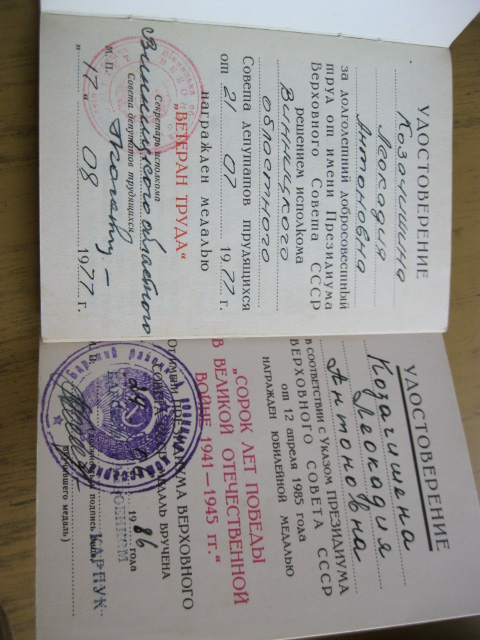 УДОСТОВЕРЕНИЕ
Козачишина
Леокадия
Антоновна
за долголетний добросовестный
труд от имени Президиума
Верховного Совета СССР
решением исполкома
Винницкого
областного
Совета депутатов трудящихся
от 21 07 1977 г.
награжден медалью
„ВЕТЕРАН ТРУДА“
Секретарь исполкома
Винницкого областного
Совета депутатов трудящихся
М. П.
„17“ 08 1977 г.
УДОСТОВЕРЕНИЕ
Козачишена
Леокадия
Антоновна
в соответствии с Указом ПРЕЗИДИУМА
ВЕРХОВНОГО СОВЕТА СССР
от 12 апреля 1985 года
НАГРАЖДЕН ЮБИЛЕЙНОЙ МЕДАЛЬЮ
„СОРОК ЛЕТ ПОБЕДЫ
В ВЕЛИКОЙ ОТЕЧЕСТВЕННОЙ
ВОЙНЕ 1941—1945 гг.“
От имени ПРЕЗИДИУМА ВЕРХОВНОГО
СОВЕТА СССР МЕДАЛЬ ВРУЧЕНА
1986 года
подпись
КАРПУК
вручившего медаль)